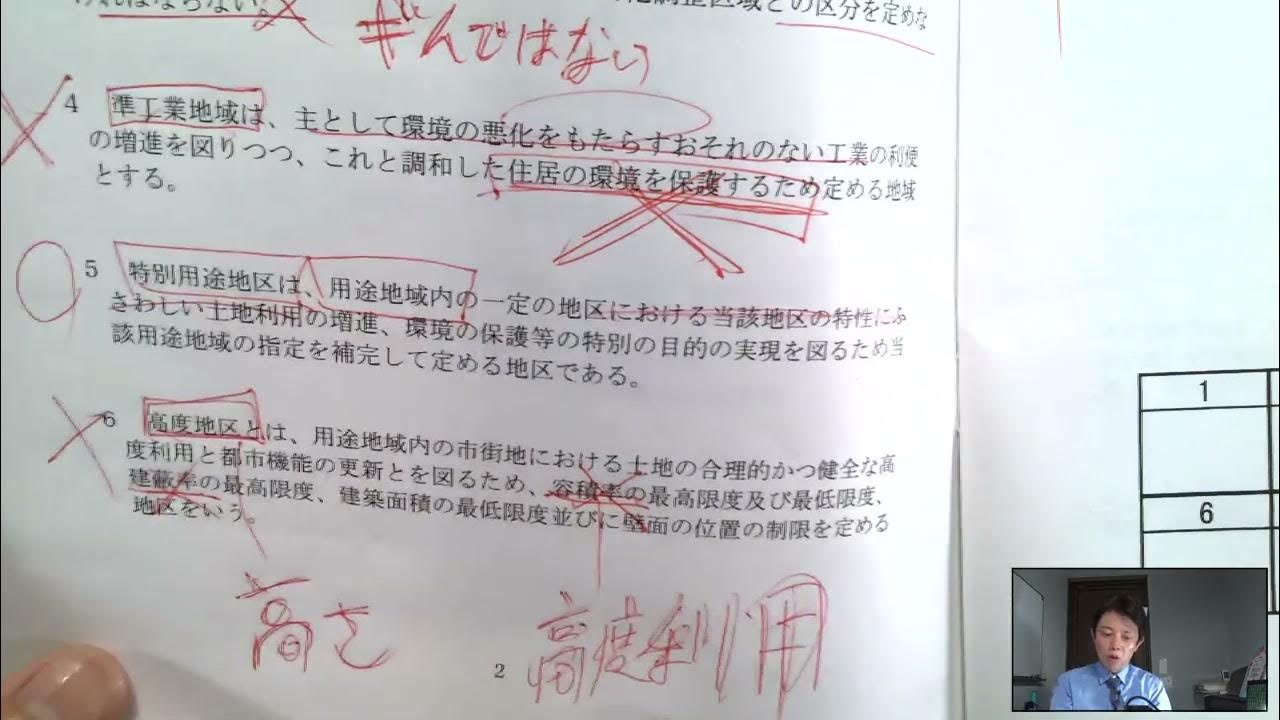 ければならない。
調整区域との区分を定めな
ぜんではない
4 準工業地域は、主として環境の悪化をもたらすおそれのない工業の利便
の増進を図りつつ、これと調和した住居の環境を保護するため定める地域
とする。
5 特別用途地区は、用途地域内の一定の地区における当該地区の特性にふ
さわしい土地利用の増進、環境の保護等の特別の目的の実現を図るため当
該用途地域の指定を補完して定める地区である。
6 高度地区とは、用途地域内の市街地における土地の合理的かつ健全な高
度利用と都市機能の更新とを図るため、容積率の最高限度及び最低限度、
建蔽率の最高限度、建築面積の最低限度並びに壁面の位置の制限を定める
地区をいう。
高さ
高度利用
2
1
6